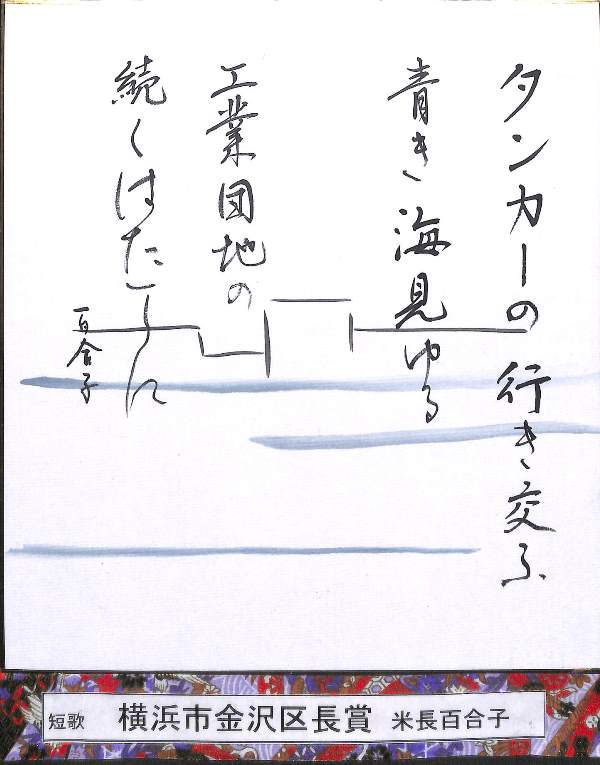 タンカーの行き交ふ
青き海見ゆる
工業団地の
続くはたてに
百合子
短歌 横浜市金沢区長賞 米長百合子